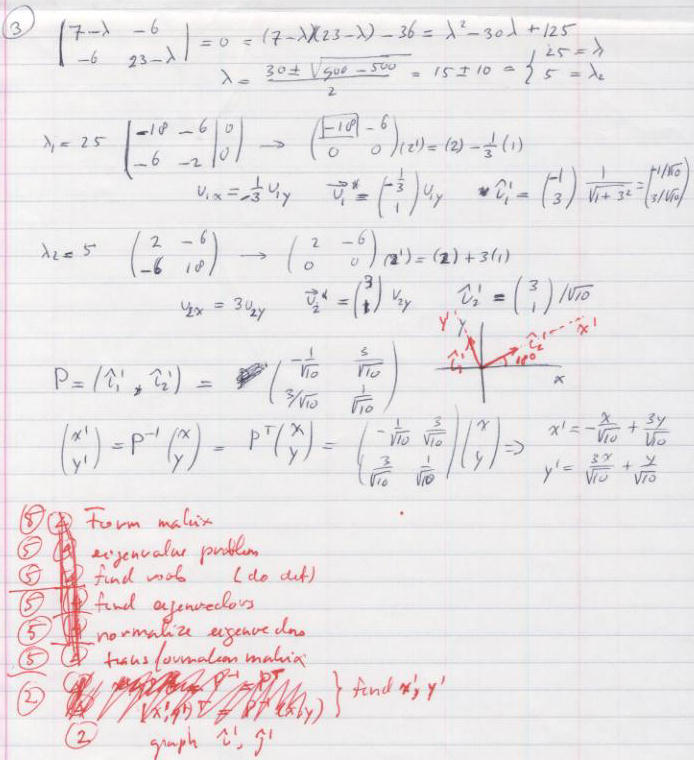 ③
| 7-λ -6 | = 0 = (7-λ)(23-λ) - 36 = λ² - 30λ + 125
| -6 23-λ |
λ = (30 ± √(900 - 500))/2 = 15 ± 10 = { 25 = λ
5 = λ₂
λ₁ = 25 | -18 -6 | 0 | → ( -18 -6 )
| -6 -2 | 0 | ( 0 0 ) (2') = (2) - 1/3 (1)
υ₁ₓ = -1/3 υ₁y υ₁* = (-1/3, 1) υ₁y î₁' = (-1, 3) 1/√(1+3²) = (-1/√10, 3/√10)
λ₂ = 5 ( 2 -6 ) → ( 2 -6 )
( -6 18 ) ( 0 0 ) (2') = (2) + 3(1)
υ₂ₓ = 3υ₂y υ₂* = (3, 1) υ₂y î₂' = (3, 1) / √10
y' y î₁' î₂' x' 18° x
P = (î₁', î₂') = ( -1/√10 3/√10 )
( 3/√10 1/√10 )
(x', y') = P⁻¹ (x, y) = Pᵀ (x, y) = ( -1/√10 3/√10 ) (x, y) ⇒ x' = -x/√10 + 3y/√10
( 3/√10 1/√10 ) y' = 3x/√10 + y/√10
⑤ Form matrix
⑤ eigenvalue problem
⑤ find roots (do det)
⑤ find eigenvectors
⑤ normalize eigenvectors
⑤ transformation matrix
② P⁻¹ = Pᵀ } find x', y'
(x', y')ᵀ = Pᵀ (x, y)
② graph î', ĵ'